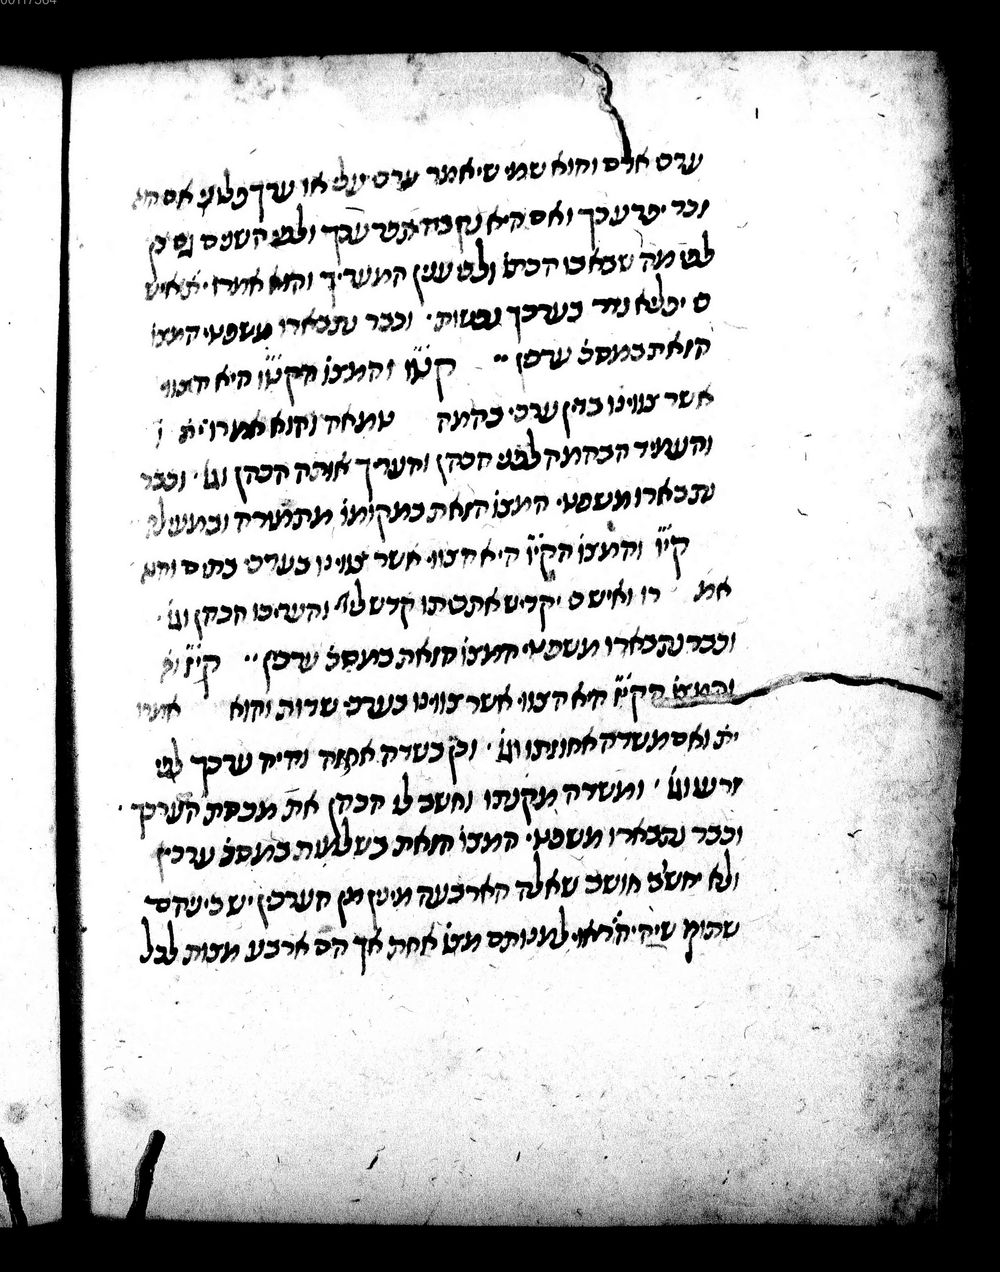 ערכי אדם והוא שמי שיאמר ערכי עלי או ערך פלוני אם הוא
זכר יפרע כך ואם היא נקבה תפרע כך ולפי השנים גם כן
לפי מה שבא בו הכתו׳ ולפי ענין המעריך והוא אמרו ית׳ איש
כי יפליא נדר בערכך נפשות · וכבר נתבארו משפטי המצו׳
הזאת במסכ׳ ערכין ·· קט״ו והמצו׳ הקט״ו היא הצווי
אשר צווינו בדין ערכי בהמה טמאה והוא אמרו ית׳
והעמיד הבהמה לפני הכהן והעריך אותה הכהן וגו׳ · וכבר
נתבארו משפטי המצו׳ הזאת במקומו׳ מתמורה ובמעילה
קי״ו והמצו׳ הקי״ו היא הצווי אשר צווינו בערכי בתים והוא
אמ רו ואיש כי יקדיש את ביתו קדש ליי׳ והעריכו הכהן וגו׳ ·
וכבר נתבארו משפטי המצו׳ הזאת במסכ׳ ערכין ·· קי״ז
והמצו׳ הקי״ז היא הצווי אשר צווינו בערכי שדות והוא אמרו
ית׳ ואם משדה אחוזתו וגו׳ · וכן בשדה אחוזה והיה ערכך לפי
זרעו וגו׳ · ומשדה מקנתו וחשב לו הכהן את מכסת הערכך ·
וכבר נתבארו משפטי המצו׳ הזאת בשלמות במסכ׳ ערכין
ולא יחשב חושב שאלה הארבעה מינין מן הערכין יש ביניהם
שתוף שיהיה ראוי למנותם מצו׳ אחת אך הם ארבע מצות לכל